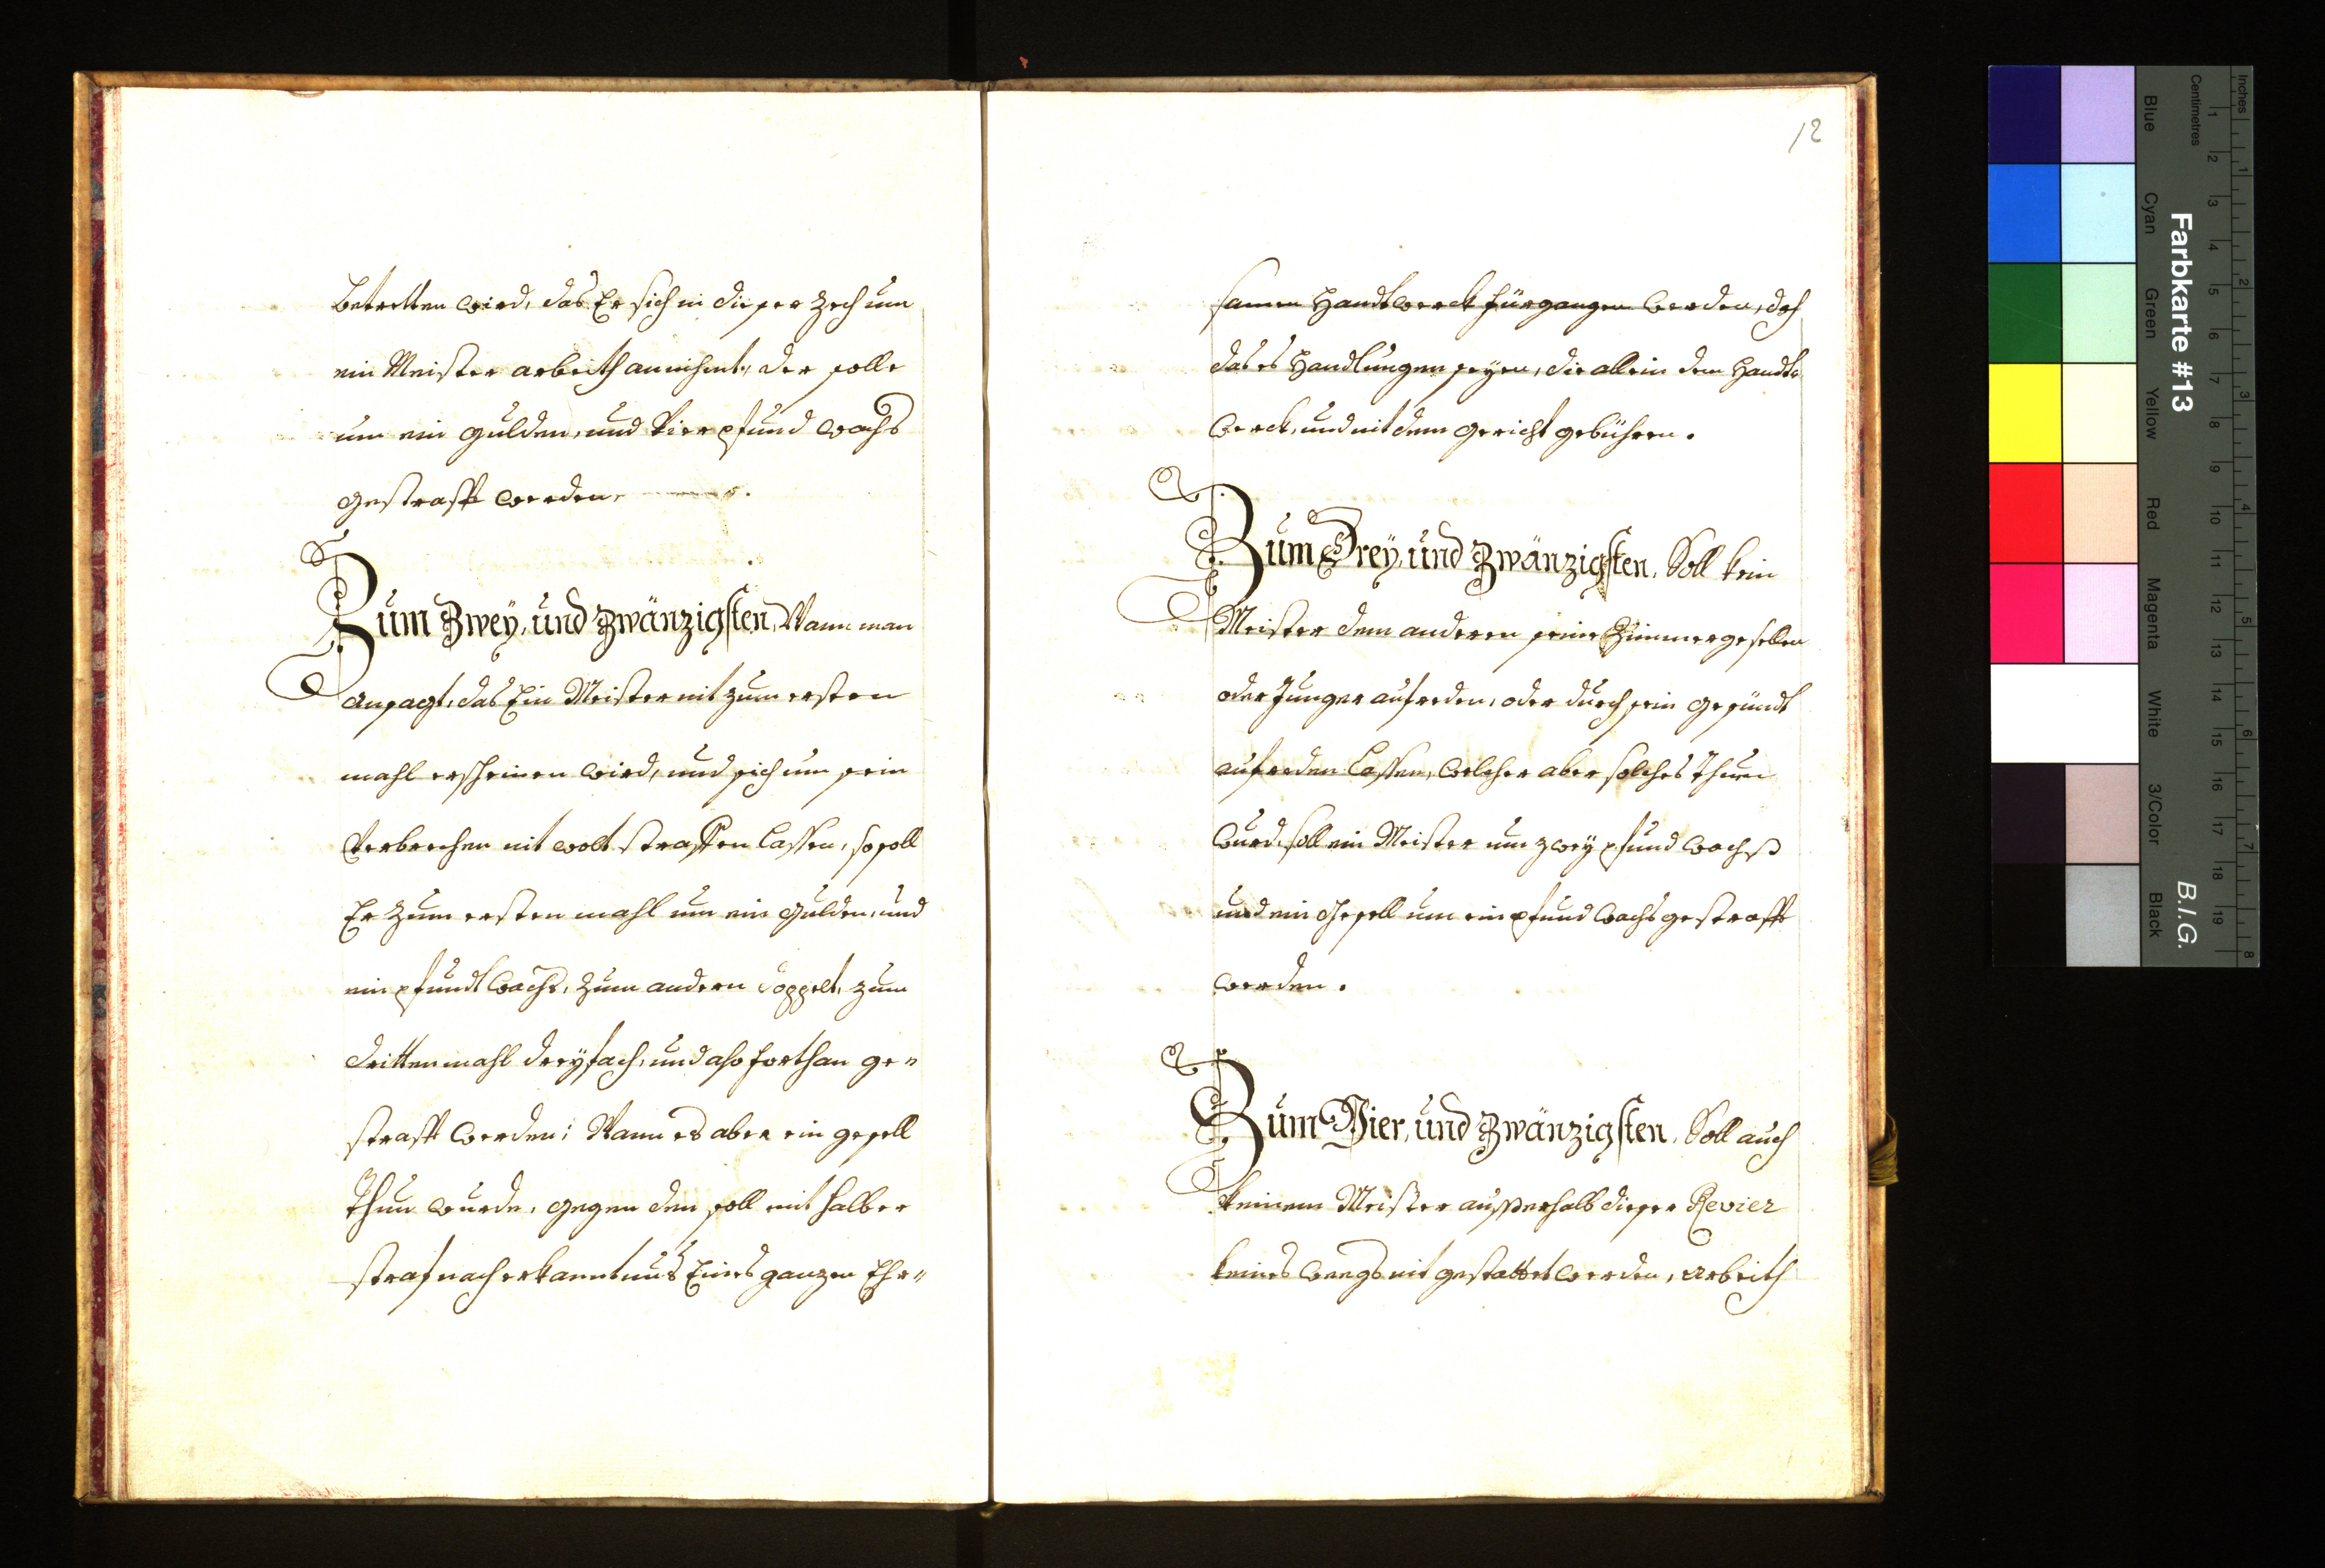 betretten wird, das Er sich in dieser Zech um
ein Meister arbeith annihmt, der solle
um ein gulden, und vier pfund wachs
gestrafft werden.
Zum Zwey, und Zwänzigsten, Wann man
ansagt, das Ein Meister nit zum ersten
mahl erscheinen wird, und sich um sein
verbrechen nit wolt straffen lassen, so soll
Er zum ersten mahl um ein gulden, und
ein pfundt wachs, zum andern doppelt, zum
dritten mahl dreyfach, und also forthan ge„
strafft werden; Wann es aber ein gesell
thun wurde, gegen den soll mit halber
straf nach erkanntnus Eines ganzen Ehr„
12
samen Handtwerck fürgangen werden, doch
das es Handlungen seyen, die allein dem Handt„
werck, und nit dem gericht gebühren.
Zum Drey, und Zwänzigsten, Soll kein
Meister dem anderen seine Zimmergesellen
oder Junger aufreden, oder durch sein gesündt
aufreden lassen, welcher aber solches thuen
wurd, soll ein Meister um zwey pfund wachß
und ein Gesell um ein pfund wachs gestrafft
werden.
Zum Vier, und Zwänzigsten, Soll auch
keinem Meister ausserhalb dieser Revier
keines weegs nit gestattet werden, arbeith
Inches
Centimetres
Farbkarte #13
B.I.G.
Blue
Cyan
Green
Yellow
Red
Magenta
White
3/Color
Black
1 2 3 4 5 6 7 8 9 10 11 12 13 14 15 16 17 18 19
1 2 3 4 5 6 7 8